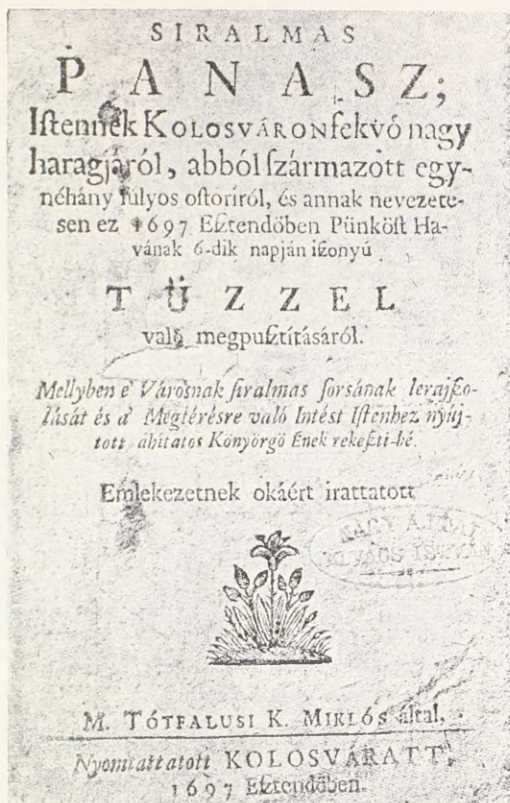 SIRALMAS
PANASZ;
Iſtennek KOLOSVÁRON fekvő nagy
haragjáról, abból ſzármazott egy-
néhány ſúlyos oſtoriról, és annak nevezete-
sen ez 1697 Eſztendőben Pünköſt Ha-
vának 6-dik napján iſzonyú
TŰZZEL
való megpuſztításáról.
Mellyben e' Városnak ſiralmas ſorsának lerajſzo-
lását és a' Megtérésre való Intést Iſtenhez nyúj-
tott áhitatos Könyörgö Ének rekeſzti-bé.
Emlekezetnek okáért irattatott
M. TÓTFALUSI K. MIKLÓS által.
Nyomtattatott KOLOSVÁRATT,
1697 Eſztendőben.